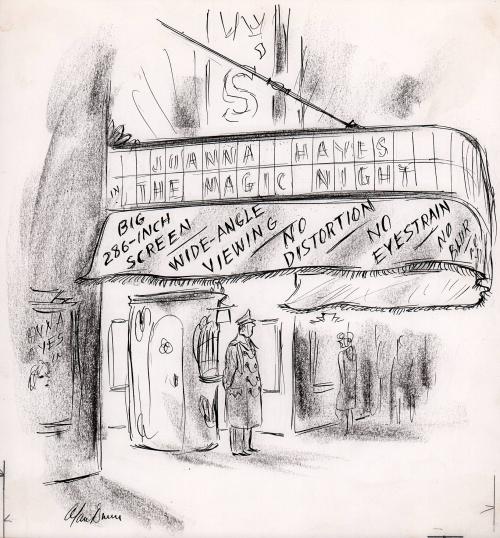 W'S
JOANNA HAYES
IN THE MAGIC NIGHT
BIG
286-INCH
SCREEN
WIDE-ANGLE
VIEWING
NO
DISTORTION
NO
EYESTRAIN
NO
BLUR
Alan Dunn